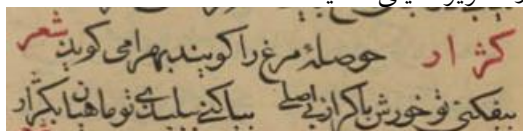 کژار حوصلهٔ مرغ را کویند بهرامی کوید شعر
بیفکنی تو خورش پاک را ز بی اصلی بیاکنی بپلیدی تو ماهیان بکژار